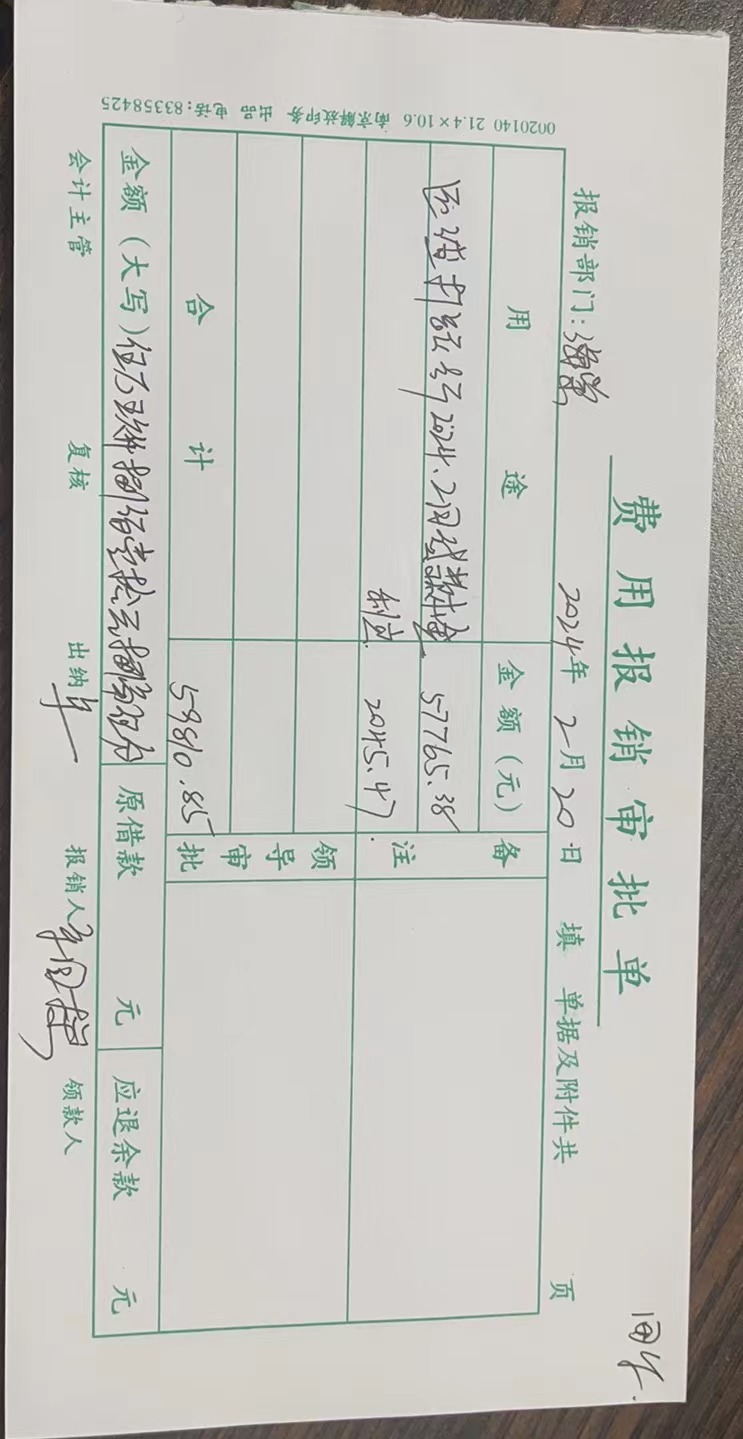 费用报销审批单
回单
报销部门:海棠
2024年2月20日填
单据及附件共 页
用途
金额(元)
备注
2024.2月
57765.38
利息
2045.47
领导审批
合计
59810.85
金额(大写)伍万玖仟捌佰壹拾元捌角伍分
原借款 元
应退余款 元
会计主管
复核
出纳
报销人
领款人
0020140 21.4×10.6 南京解放印务 出品 电话:83358425